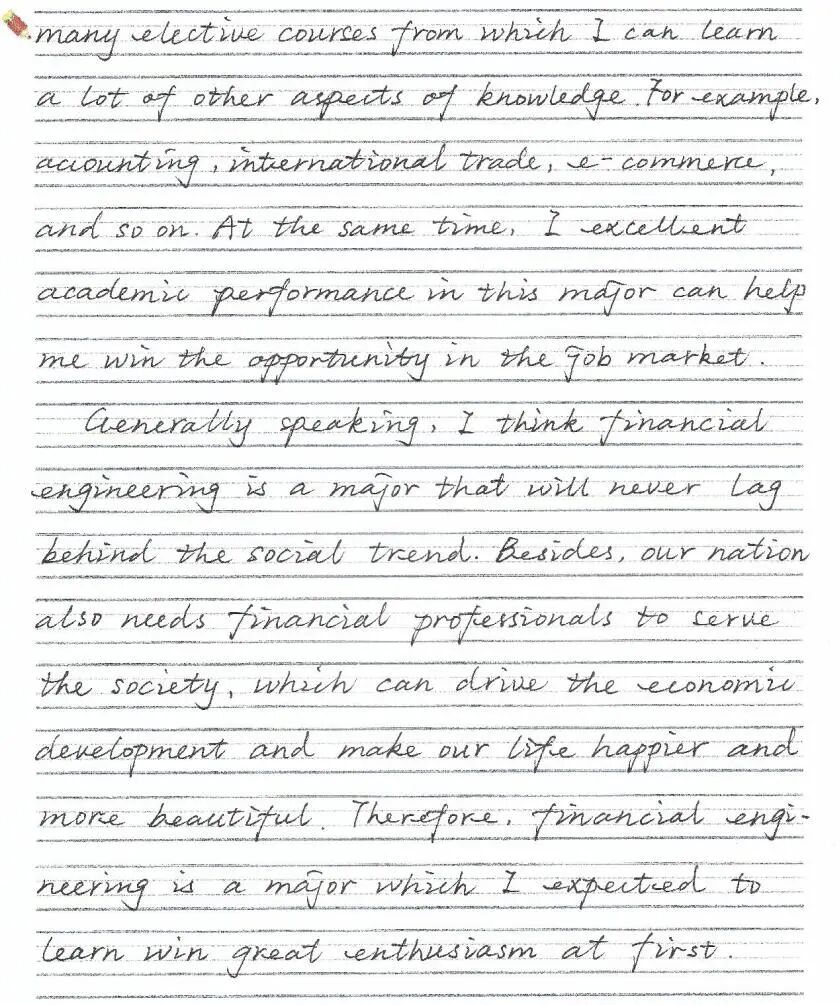 many elective courses from which I can learn
a lot of other aspects of knowledge. For example,
accounting, international trade, e-commerce,
and so on. At the same time, I excellent
academic performance in this major can help
me win the opportunity in the job market.
Generally speaking, I think financial
engineering is a major that will never lag
behind the social trend. Besides, our nation
also needs financial professionals to serve
the society, which can drive the economic
development and make our life happier and
more beautiful. Therefore, financial engi-
neering is a major which I expected to
learn win great enthusiasm at first.